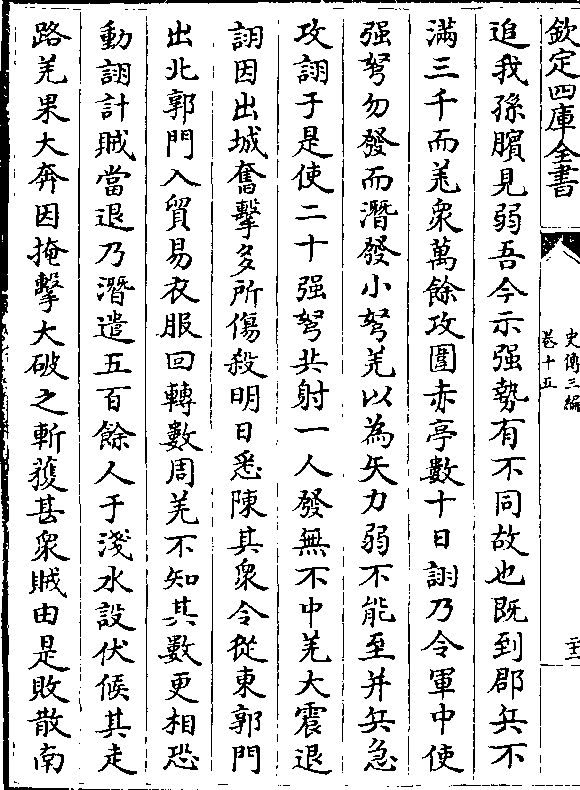 欽定四庫全書
史傳三編
卷十五
追我孫臏見弱吾今示强勢有不同故也既到郡兵不
滿三千而羌衆萬餘攻圍赤亭數十日詡乃令軍中使
强弩勿發而潛發小弩羌以為矢力弱不能至并兵急
攻詡于是使二十强弩共射一人發無不中羌大震退
詡因出城奮擊多所傷殺明日悉陳其衆令從東郭門
出北郭門入貿易衣服回轉數周羌不知其數更相恐
動詡計賊當退乃潛遣五百餘人于淺水設伏候其走
路羌果大奔因掩擊大破之斬獲甚衆賊由是敗散南